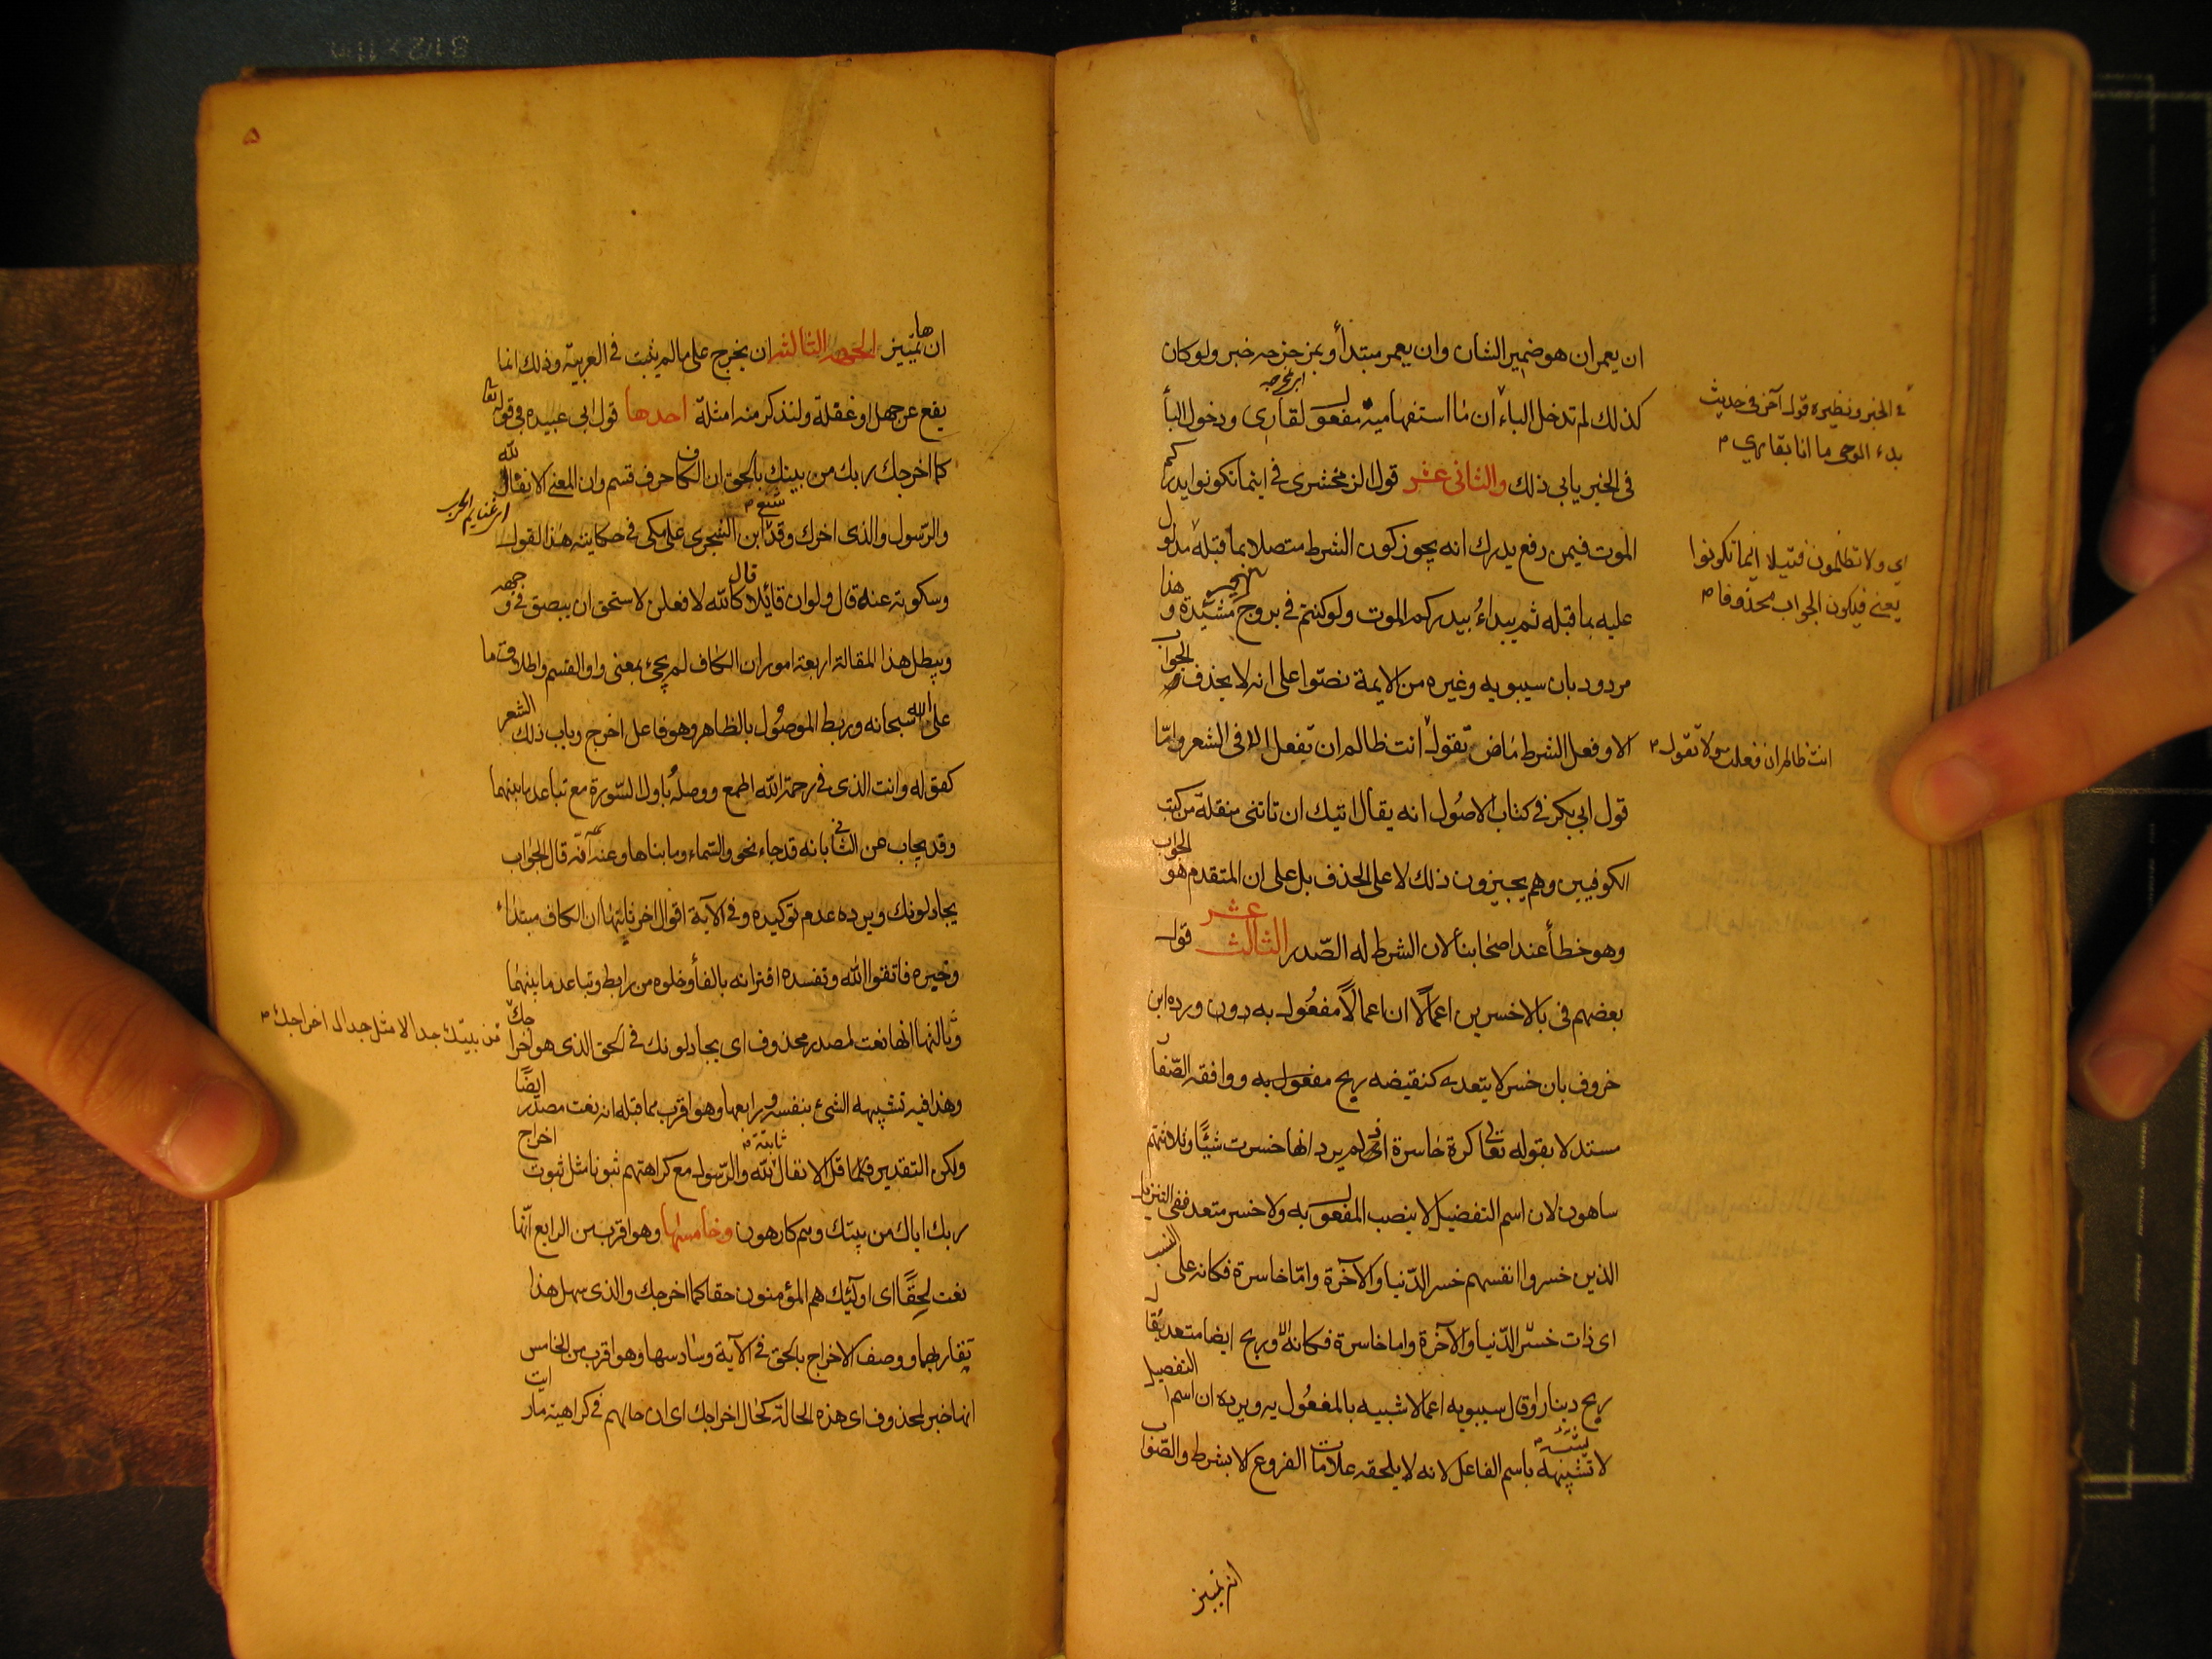 ان يعمر ان هو ضمير الشان وان يعمر مبتدأ وبمزحزحه خبر ولو كان
كذلك لم تدخل الباء ان ما استفهامية مفعول لقاري ودخول البأ
في الخبر يابي ذلك والثاني عشر قول الزمخشري في اينما تكونوا يدرككم
الموت فيمن رفع يدرك انه يجوز كون الشرط متصلا بما قبله مدلو
عليه بما قبله ثم يبداءُ بيدرككم الموت ولو كنتم في بروج مشيدة و هذا
مردود بان سيبويه وغيره من الايمة نصّوا على انه لا يحذف الجواب
الا وفعل الشرط ماض تقول انت ظالم ان تفعل الا في الشعر وامّا
قول ابي بكر في كتاب الاصُول انه يقال اتيك ان تاتني منقلة من كتب
الكوفيين وهم يجيزون ذلك لا على الحذف بل على ان المتقدم هو الجواب
وهو خطأ عند اصحابنا لان الشرط له الصّدر الثالث عشر قول
بعضهم في بالاخسرين اعمالًا ان اعمالًا مفعُول به دون ورده ابن
خروف بان خسر لا يتعدى كنقيضه ربح مفعول به ووافقه الصّفا
مستدلا بقوله تعالى كرة خاسرة اذ لم يرد انها خسرت شيئًا وثلاثتهم
ساهون لان اسم التفضيل لا ينصب المفعول به ولا خسر متعد ففي التنزيل
الذين خسروا انفسهم خسر الدّنيا والآخرة وامّا خاسرة فكانه على النسب
اي ذات خسر الدّنيا والآخرة واما خاسرة فكانه وربح ايضا متعد يُقال
ربح دينارا وقال سيبويه اعمالا شبيه بالمفعُول به ويرده ان اسم التفصيل
لا تشبيهه باسم الفاعل لانه لا يلحقه علامات الفروع الا بشرط والصّواب
انه تمييز
في الخبر ونظيره قول آخر في حديث
بدء الوحى ما انا بقاري م
اي ولا تظلمون فتيلا اينما تكونوا
يعني فيكون الجواب محذوفا م
انت ظالم ان فعلت ولا تقول م
٥
انها تمييز الجهة الثالثة ان يخرج على ما لم يثبت في العربية وذلك انما
يقع عن جهل او غفلة ولنذكر منه امثلة احدها قول ابي عبيده في قوله تعا
كما اخرجك ربك من بيتك بالحق ان الكاف حرف قسم وان المعنى الانفال لله
والرّسول والذي اخرك وقد شنع ابن الشجري على مكي في حكايته هذا القول
وسكوته عنه قال ولو ان قائلا قال كالله لافعلن لاستحق ان يبصق في وجهه
ويبطل هذا المقالة اربعة امور ان الكاف لم يجئ بمعنى واو القسم واطلاق ما
على الله سبحانه وربط الموصُول بالظاهر وهو فاعل اخرج وباب ذلك الشعر
كقوله وانت الذي في رحمة الله اطمع ووصله باول السّورة مع تباعد ما بينهما
وقد يجاب عن الثاني بانه قد جاء نحو والسّماء وما بناها وعنه انه قال الجواب
يجادلونك ويرده عدم توكيده وفي الآية اقوال اخر ثانيها ان الكاف مبتداء
وخبره فاتقوا الله وتفسده اقترانه بالفأ وخلوه من رابط وتباعد ما بينهما
وثالثها انها نعت لمصدر محذوف اي يجادلونك في الحق الذي هو اخراجك
من بيتك جدالا مثل جدال اخراجك م
وهذا فيه تشبيه الشئ بنفسه ورابعها وهو اقرب مما قبله انه نعت مصدر ايضًا
ولكن التقدير قل الانفال ثابتة لله والرّسول مع كراهتهم ثبوتا مثل ثبوت اخراج
ربك اياك من بيتك وهم كارهون وخامسها وهو اقرب من الرابع انّها
نعت لحقًّا اي اولئك هم المؤمنون حقا كما اخرجك والذي سهل هذا
تقاربهما ووصف الاخراج بالحق في الآية وسادسها وهو اقرب من الخامس
انها خبر لمحذوف اي هذه الحالة كحال اخراجك اي ان حالهم في كراهية ما رايت